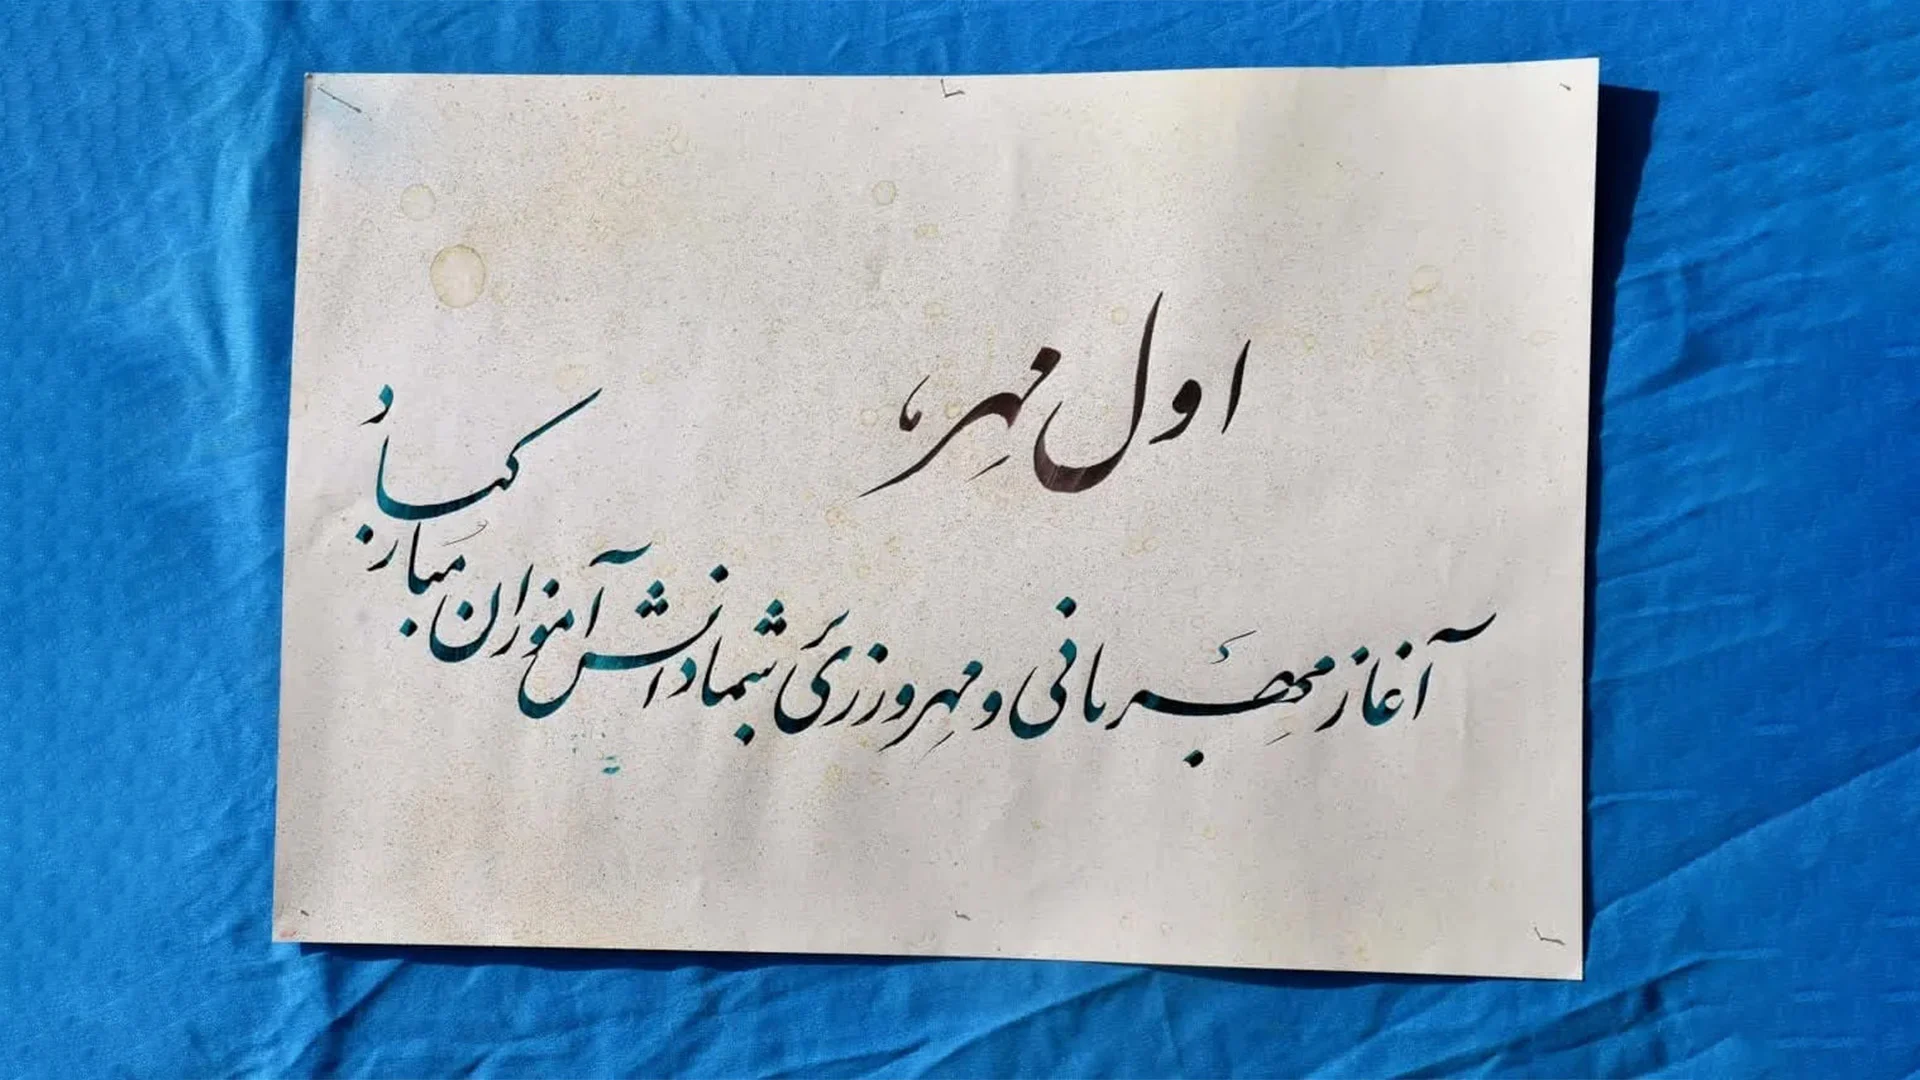 اول مهر،
آغاز مهربانی و مهرورزیٔ شما دانش آموزان مبارکباد